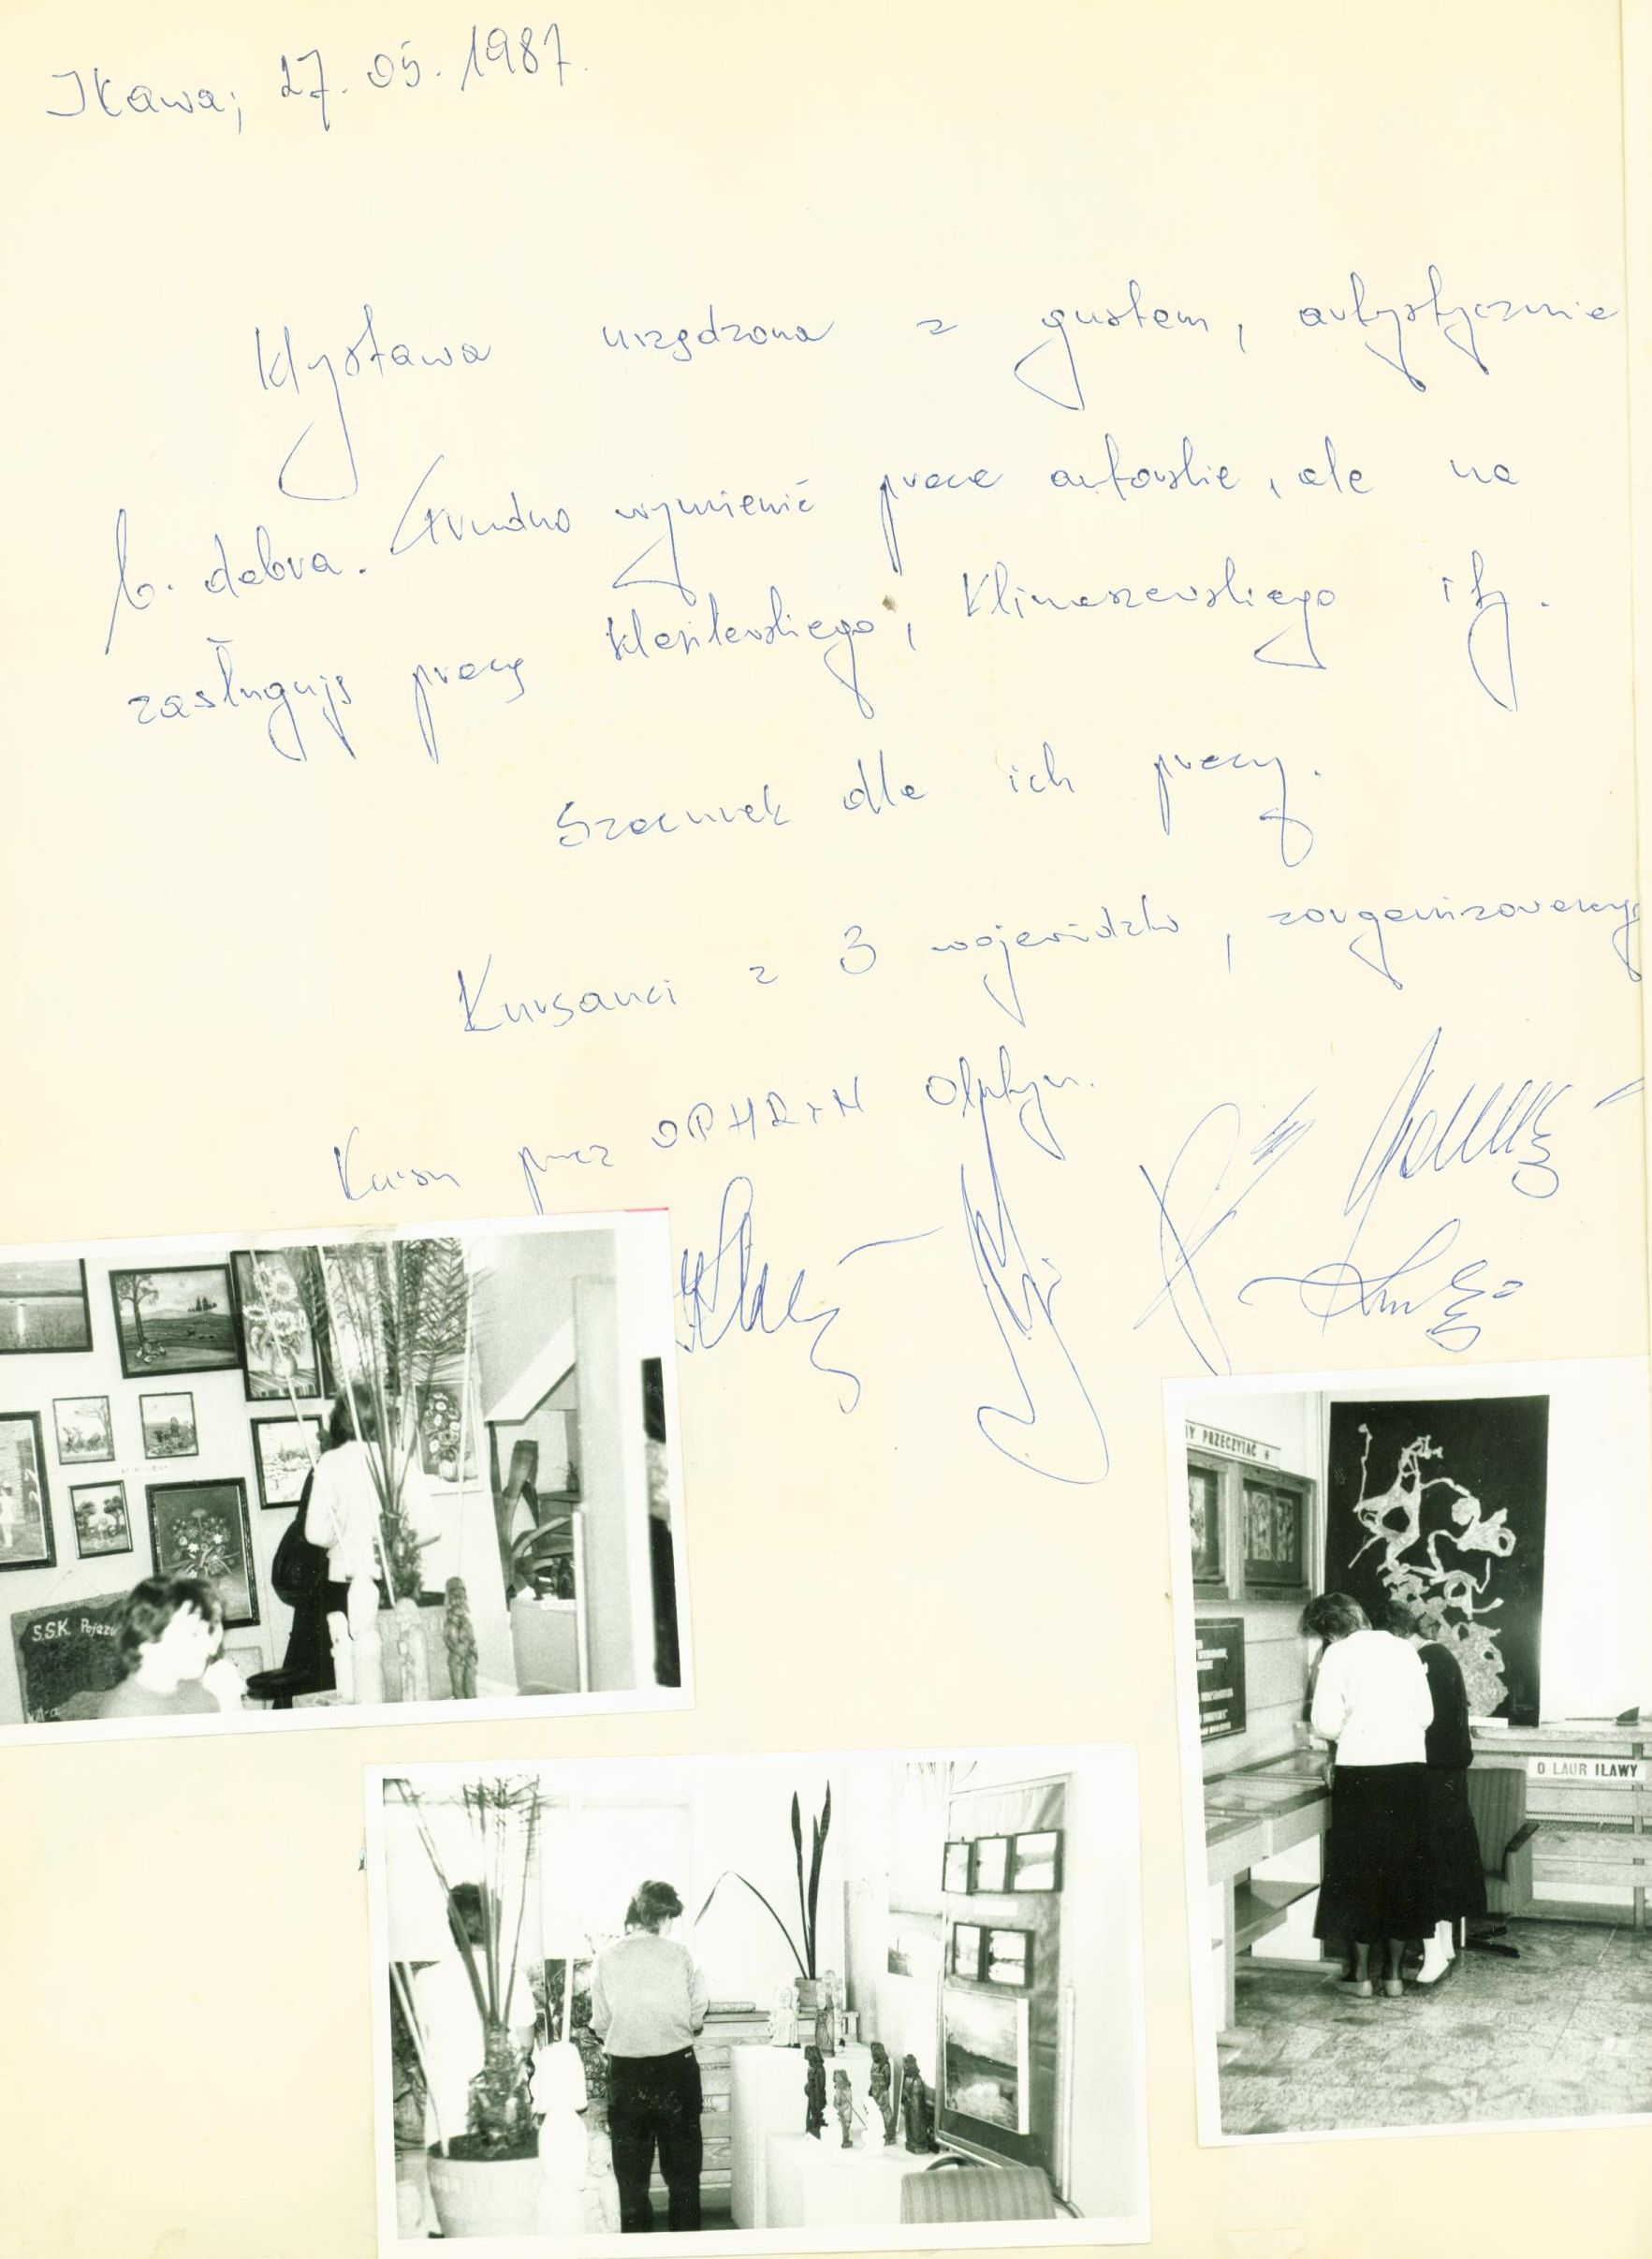 Iława; 27.05.1987.
Wystawa urządzona z gustem, artystycznie
b. dobra. Trudno wymienić prace autorskie, ale na
zasługują pracy , Klimaszewskiego itj.
Szacunek dla ich pracy.
Kursanci z 3 województw, zorganizowany
przez OPHRiN Olsztyn.
S.S.K. Pojezi
Y PRZECZYTAĆ
O LAUR IŁAWY